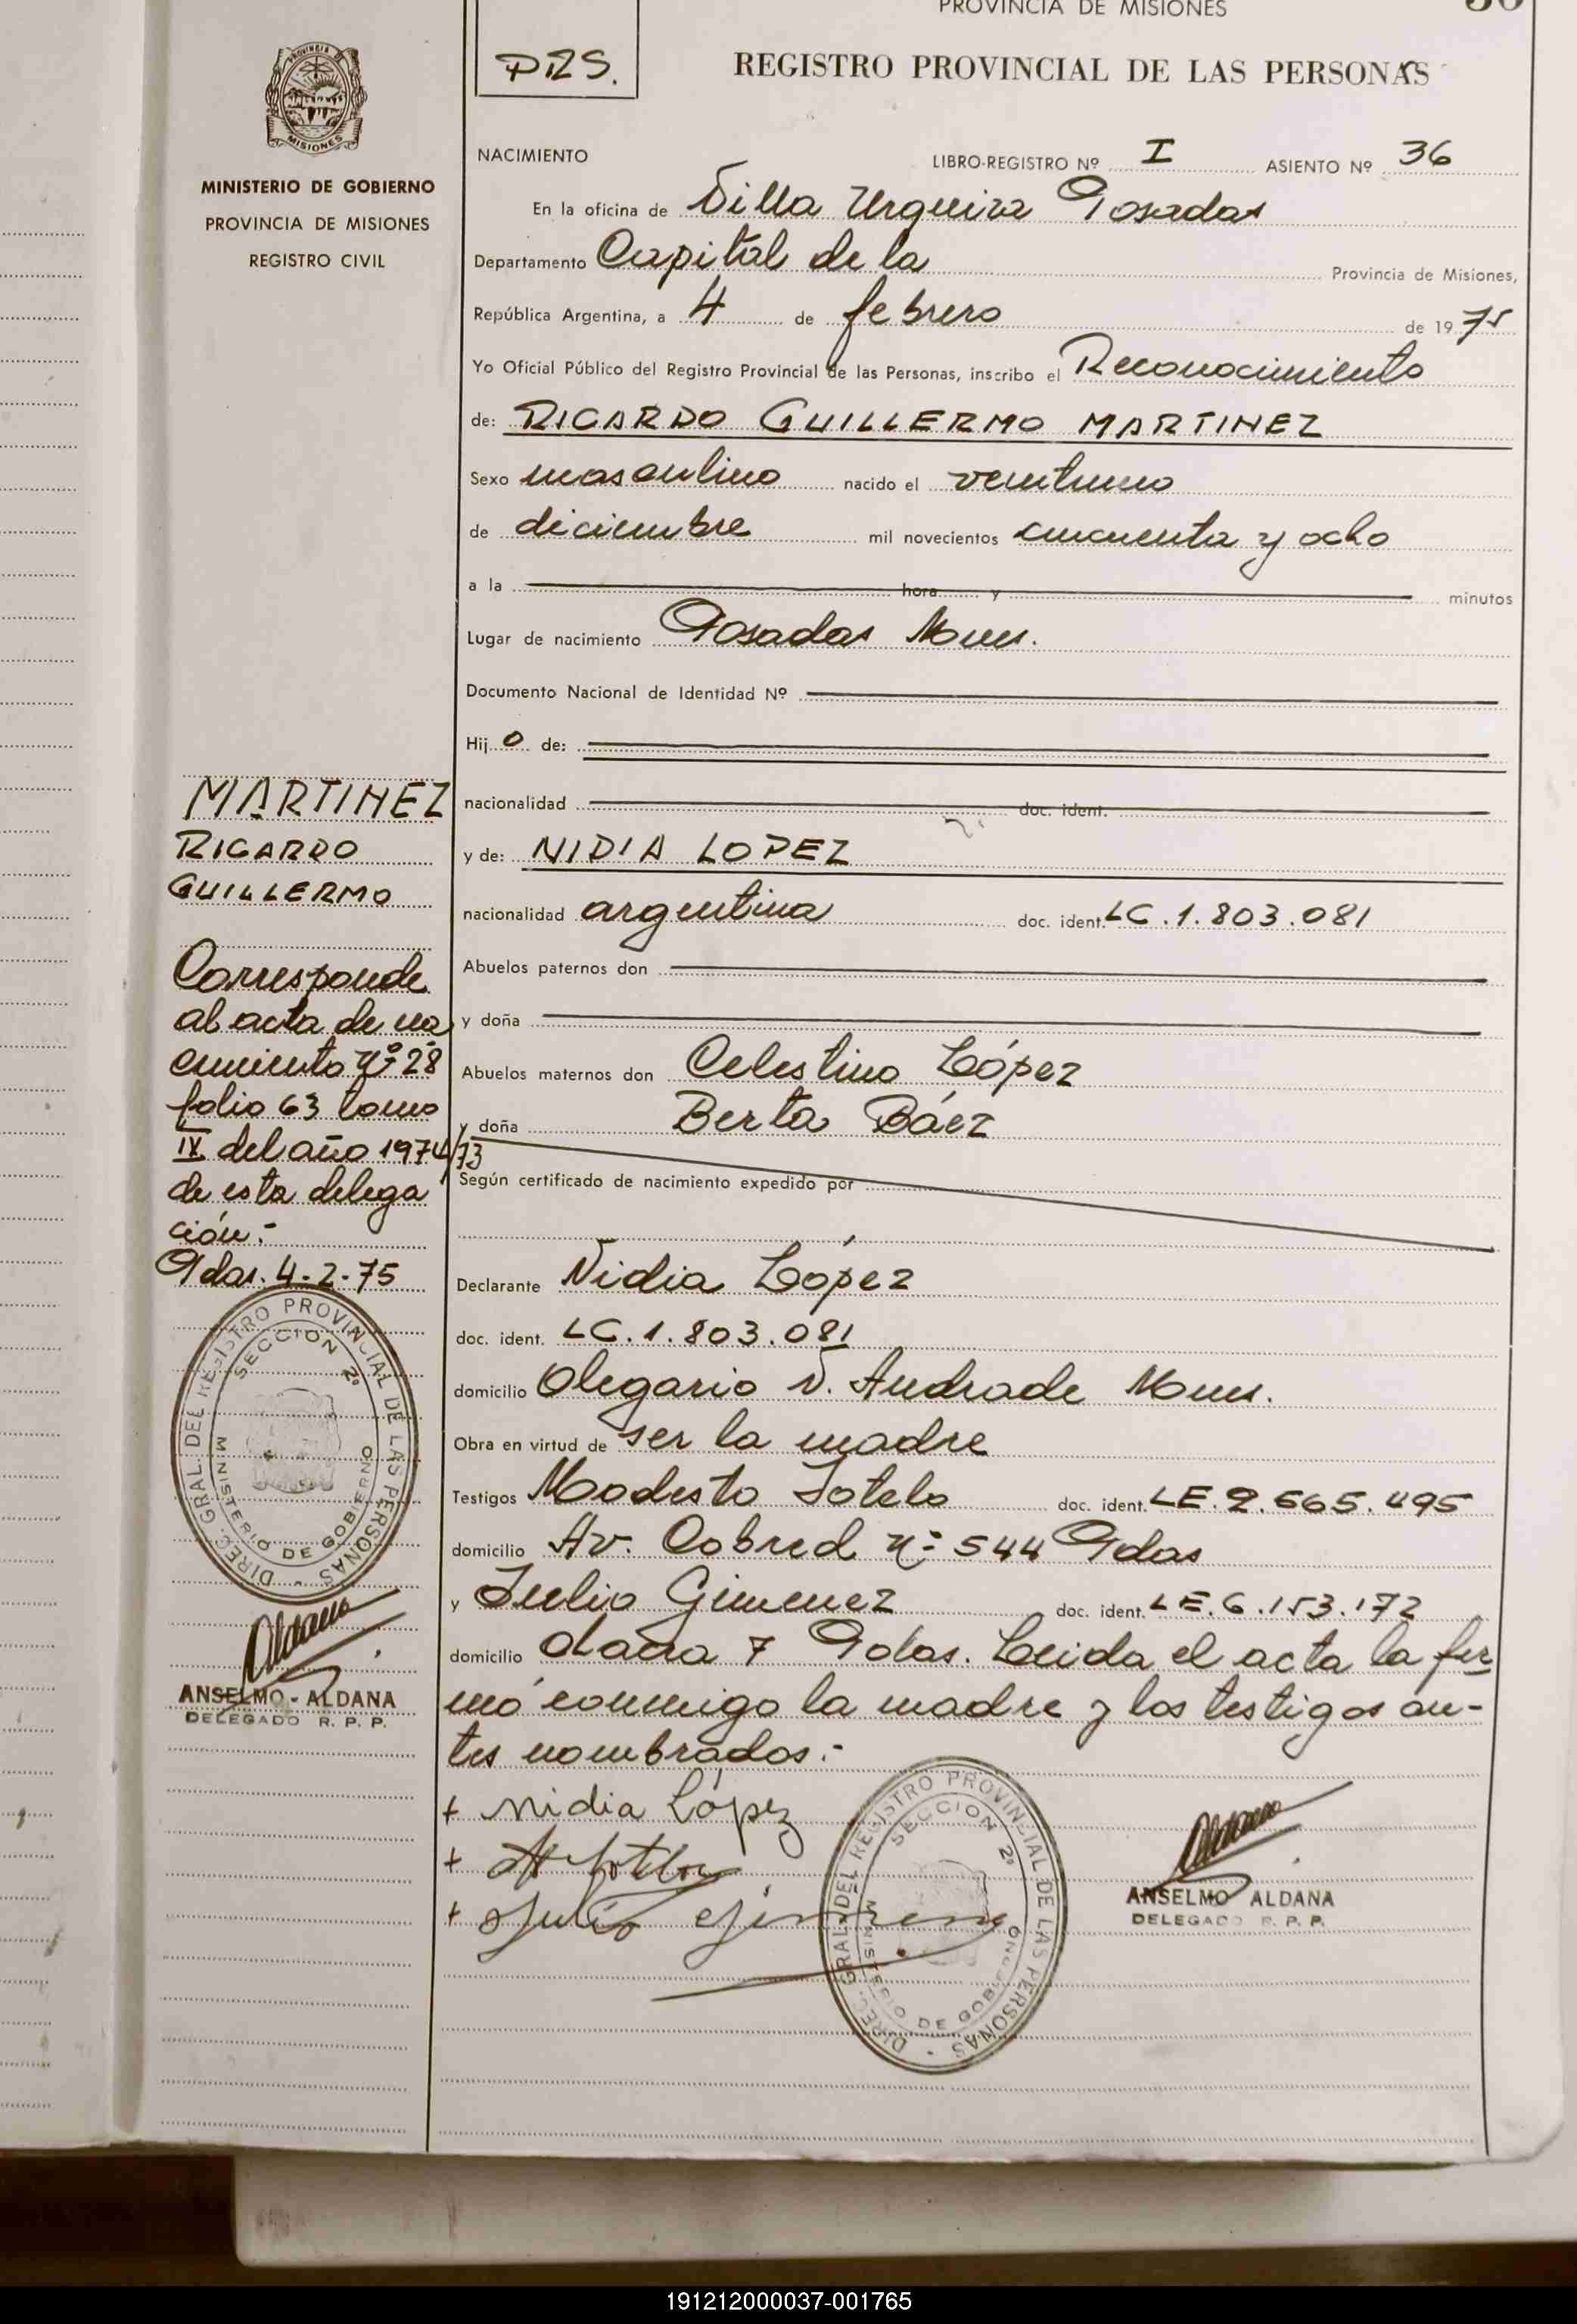 PROVINCIA DE MISIONES
PDS.
REGISTRO PROVINCIAL DE LAS PERSONAS
MISIONES
MINISTERIO DE GOBIERNO
PROVINCIA DE MISIONES
REGISTRO CIVIL
NACIMIENTO LIBRO-REGISTRO Nº I ASIENTO Nº 36
En la oficina de Villa Urquiza Posadas
Departamento Capital de la Provincia de Misiones,
República Argentina, a 4 de febrero de 1975
Yo Oficial Público del Registro Provincial de las Personas, inscribo el Reconocimiento
de: RICARDO GUILLERMO MARTINEZ
Sexo masculino nacido el veintiuno
de diciembre mil novecientos cincuenta y ocho
a la hora y minutos
Lugar de nacimiento Posadas Mnes.
Documento Nacional de Identidad Nº
Hijo de:
nacionalidad doc. ident.
y de: NIDIA LOPEZ
nacionalidad argentina doc. ident. LC.1.803.081
Abuelos paternos don
y doña
Abuelos maternos don Celestino López
y doña Berta Báez
Según certificado de nacimiento expedido por
Declarante Nidia López
doc. ident. LC.1.803.081
domicilio Olegario V. Andrade Mnes.
Obra en virtud de ser la madre
Testigos Modesto Sotelo doc. ident. LE.2.565.495
domicilio Av. Cobred nº 544 Pdas
y Julio Gimenez doc. ident. LE.6.153.172
domicilio 7 Pdas. Leida el acta la fir
mó conmigo la madre y los testigos an-
tes nombrados.-
+ Nidia López
+
+ Julio Gimenez
MARTINEZ
RICARDO
GUILLERMO
Corresponde
al acta de na
cimiento Nº 28
folio 63 tomo
IV del año 1974/73
de esta delega
ción.-
Pdas. 4-2-75
DIREC. GRAL. DEL REGISTRO PROVINCIAL DE LAS PERSONAS
SECCION 2º
MINISTERIO DE GOBIERNO
Aldana
ANSELMO - ALDANA
DELEGADO R. P. P.
DIREC. GRAL. DEL REGISTRO PROVINCIAL DE LAS PERSONAS
SECCION 2º
MINISTERIO DE GOBIERNO
Aldana
ANSELMO ALDANA
DELEGADO R. P. P.
191212000037-001765